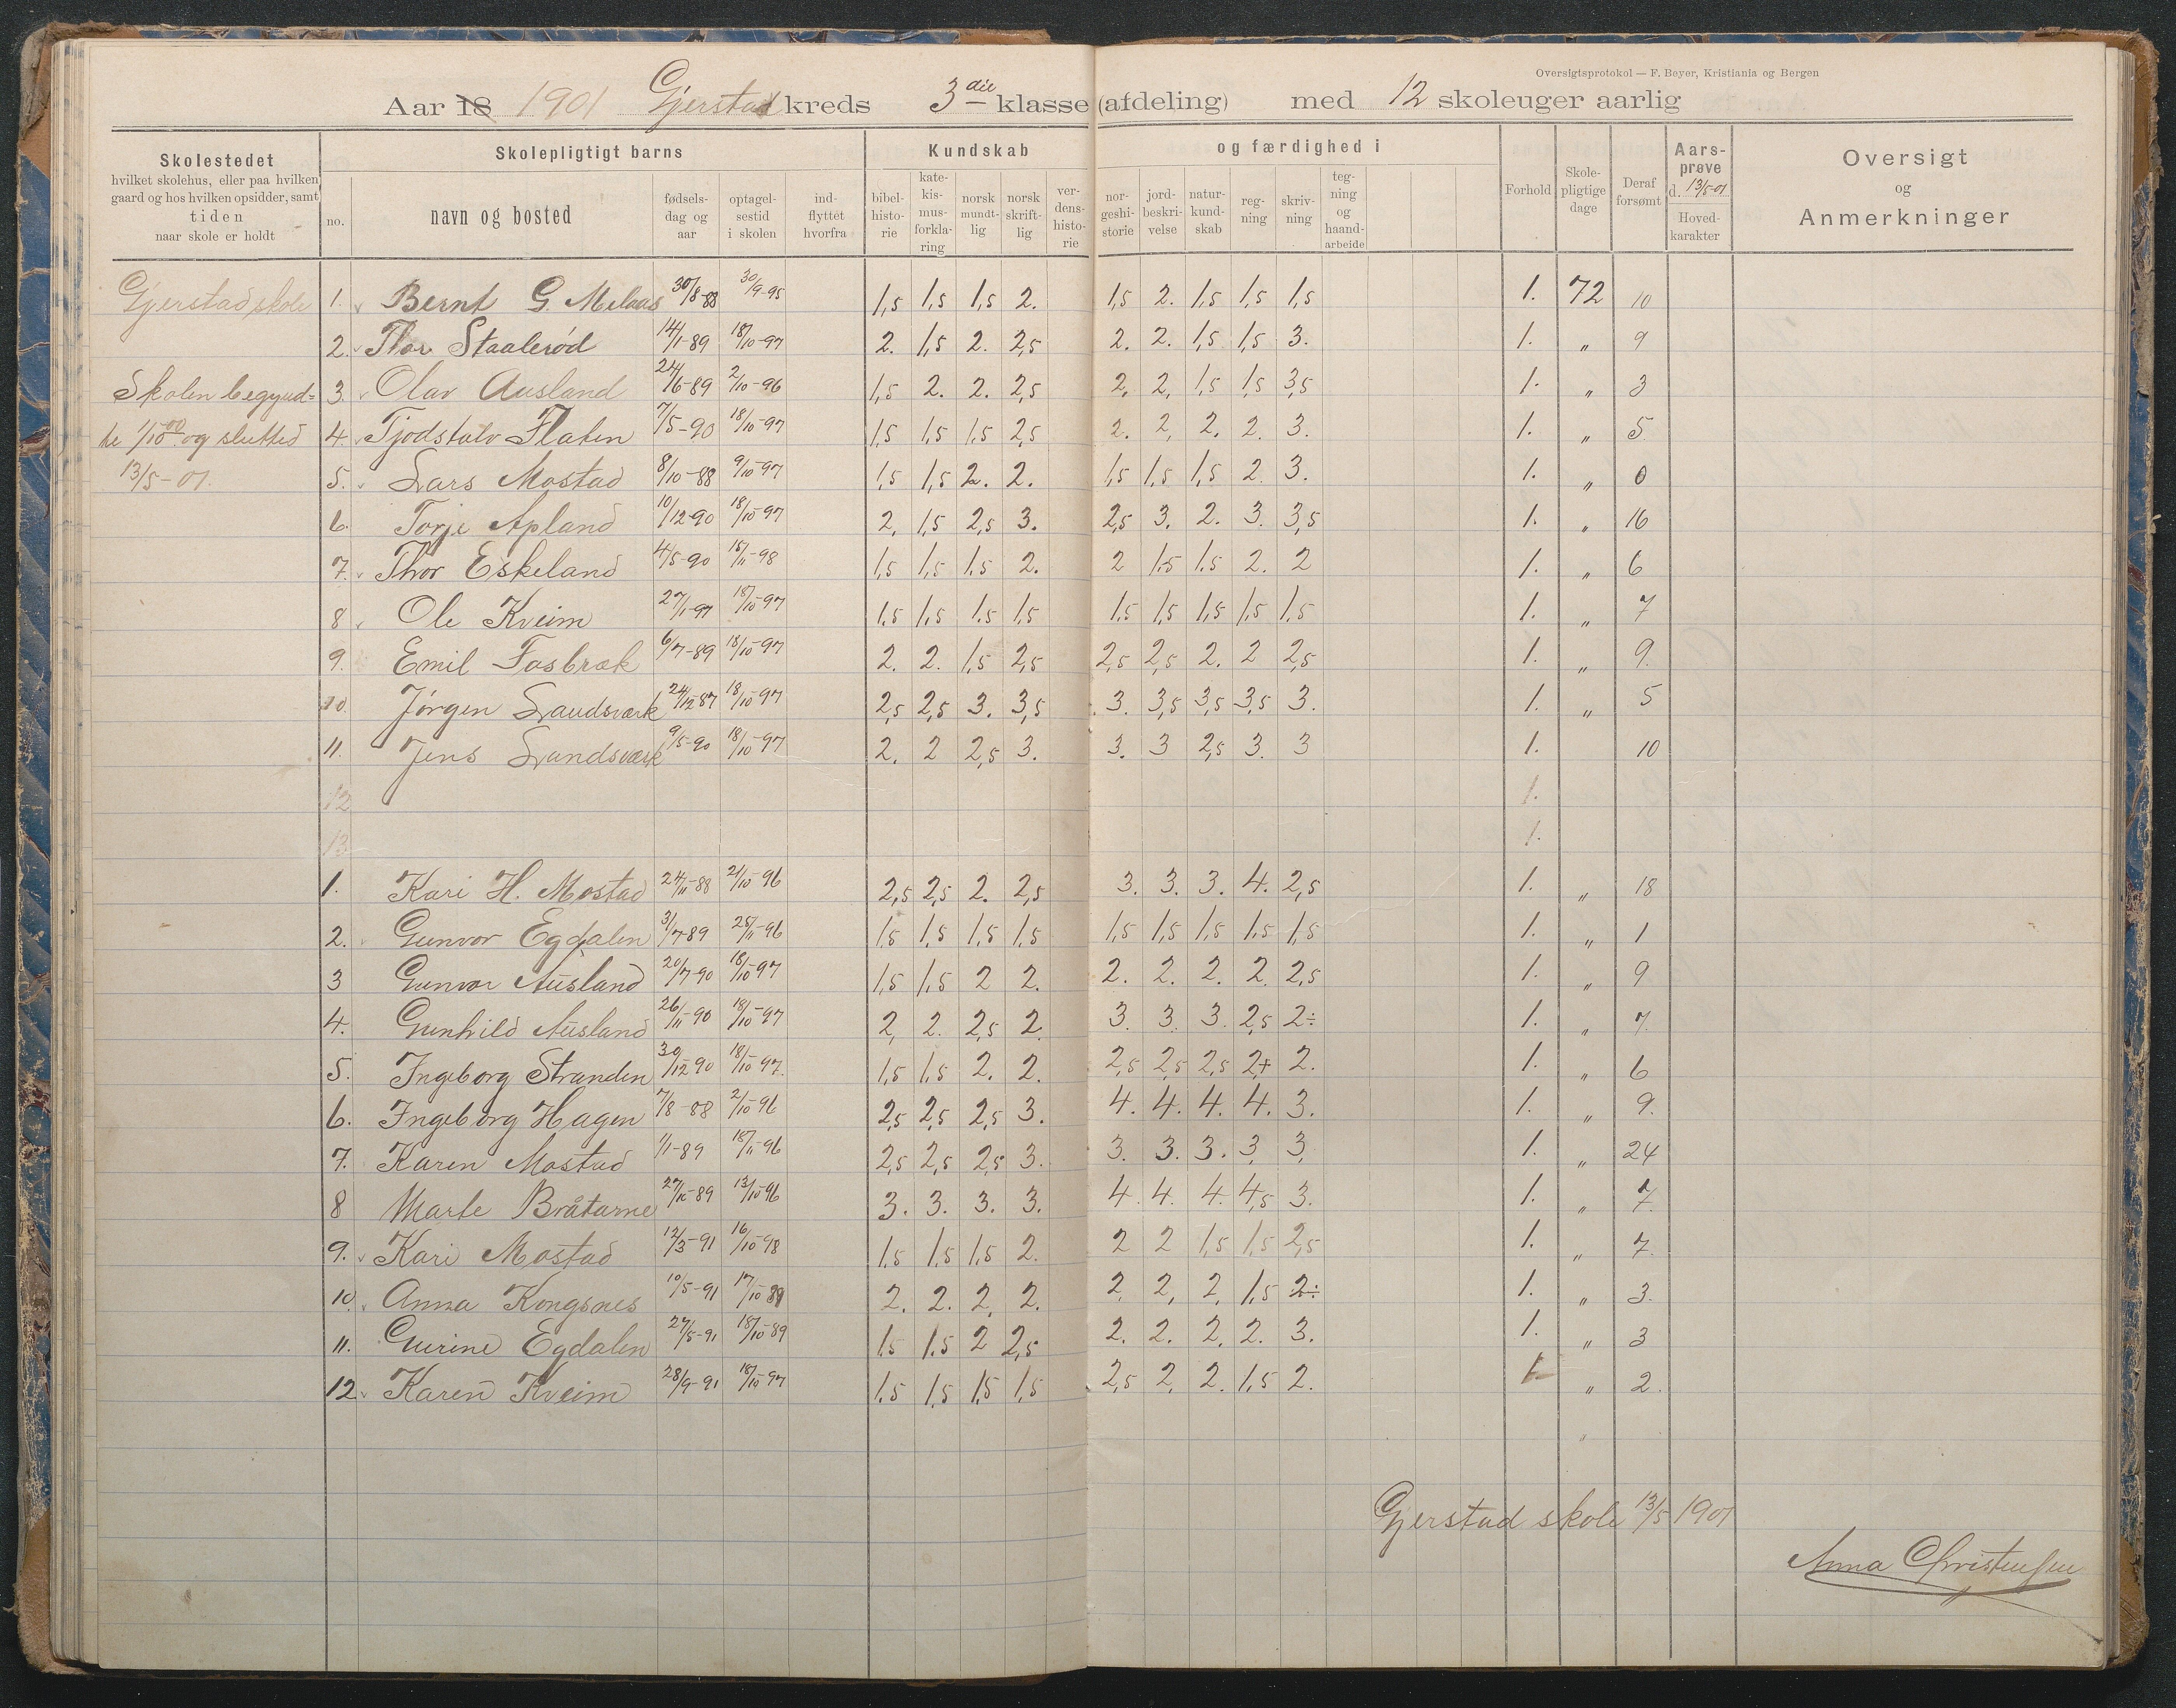 Oversigtsprotokol — F. Beyer, Kristiania og Bergen
Aar 18 1901 Gjerstad kreds 3die klasse (afdeling) med 12 skoleuger aarlig
Skolestedet
hvilket skolehus, eller paa hvilken
gaard og hos hvilken opsidder, samt
tiden
naar skole er holdt
Skolepligtigt barns
no.
navn og bosted
fødsels-
dag og
aar
optagel-
sestid
i skolen
ind-
flyttet
hvorfra
Kundskab og færdighed i
bibel-
histo-
rie
kate-
kis-
mus-
forkla-
ring
norsk
mundt-
lig
norsk
skrift-
lig
ver-
dens-
histo-
rie
nor-
geshi-
storie
jord-
beskri-
velse
natur-
kund-
skab
reg-
ning
skriv-
ning
teg-
ning
og
haand-
arbeide
Forhold
Skole-
pligtige
dage
Deraf
forsømt
Aars-
prøve
d. 13/5-01
Hoved-
karakter
Oversigt
og
Anmerkninger
Gjerstad skole
Skolen begynd=
te 1/10 00 og slutted
13/5-01.
1. Bernt G. Melaas 30/8-88 30/9-95 1,5 1,5 1,5 2. 1,5 2. 1,5 1,5 1,5 1. 72 10
2. Thor Staalerød 14/1-89 18/10-97 2. 1,5 2. 2,5 2. 2. 1,5 1,5 3. 1. " 9
3. Olav Ausland 24/6-89 2/10-96 1,5 2. 2. 2,5 2. 2, 1,5 1,5 3,5 1. " 3
4. Tjodstalv Flaten 7/5-90 18/10-97 1,5 1,5 1,5 2,5 2. 2, 2. 2. 3. 1. " 5.
5. Lars Mostad 8/10-88 9/10-97 1,5 1,5 2. 2. 1,5 1,5 1,5 2. 3. 1. " 0
6. Torje Apland 10/12-90 18/10-97 2, 1,5 2,5 3. 2,5 3. 2. 3. 3,5 1. " 16
7. Thor Eskeland 4/5-90 15/11-98 1,5 1,5 1,5 2. 2 1.5 1.5 2. 2 1. " 6
8 Ole Kveim 27/1-97 18/10-97 1.5 1,5 1.5 1,5 1,5 1,5 1,5 1,5 1,5 1. " 7
9. Emil Fosbræk 6/7-89 18/10-97 2. 2. 1,5 2,5 2,5 2,5 2. 2 2,5 1. " 9.
10. Jørgen Landsværk 24/12-87 18/10-97 2,5 2,5 3. 3,5 3. 3,5 3,5 3,5 3. 1. " 5
11. Jens Landsværk 9/5-90 18/10-97 2. 2 2,5 3. 3. 3 2,5 3. 3 1. 10
12 1.
13 1.
1. Kari H. Mostad 24/11-88 21/10-96 2,5 2,5 2. 2,5 3. 3. 3. 4. 2,5 1. " 18
2. Gunvor Egdalen 3/7-89 25/11-96 1,5 1,5 1,5 1,5 1,5 1,5 1,5 1,5 1,5 1. " 1
3 Gunvor Ausland 20/7-90 18/10-97 1,5 1,5 2 2. 2. 2. 2. 2. 2,5 1. " 9
4. Gunhild Ausland 26/11-90 18/10-97 2, 2. 2,5 2. 3. 3. 3. 2,5 2÷ 1. " 7.
5. Ingeborg Stranden 30/12-90 18/10-97. 1,5 1,5 2. 2. 2,5 2,5 2,5 2+ 2. 1. " 6
6. Ingeborg Hagen 7/8-88 2/10-96 2,5 2,5 2,5 3. 4. 4. 4. 4. 3. 1. " 9.
7. Karen Mostad 1/1-89 18/11-96 2,5 2,5 2,5 3. 3. 3. 3. 3. 3. 1. " 24
8 Marte Bråtarne 27/10-89 13/10-96 3. 3. 3. 3. 4. 4. 4. 4,5 3. 1. " 7.
9. Kari Mostad 12/3-91 16/10-98 1,5 1,5 1,5 2. 2 2 1,5 1,5 2,5 1. " 7.
10. Anna Kongsnes 10/5-91 17/10-89 2. 2. 2. 2. 2. 2, 2. 1,5 2÷ 1. " 3.
11. Gurine Egdalen 27/5-91 18/10-89 1,5 1.5 2 2,5 2. 2. 2. 2. 3. 1. " 3
12. Karen Kveim 28/9-91 18/10-97 1,5 1,5 1,5 1,5 2,5 2. 2. 1,5 2. 1. " 2.
Gjerstad skole 13/5 1901
Anna Christensen